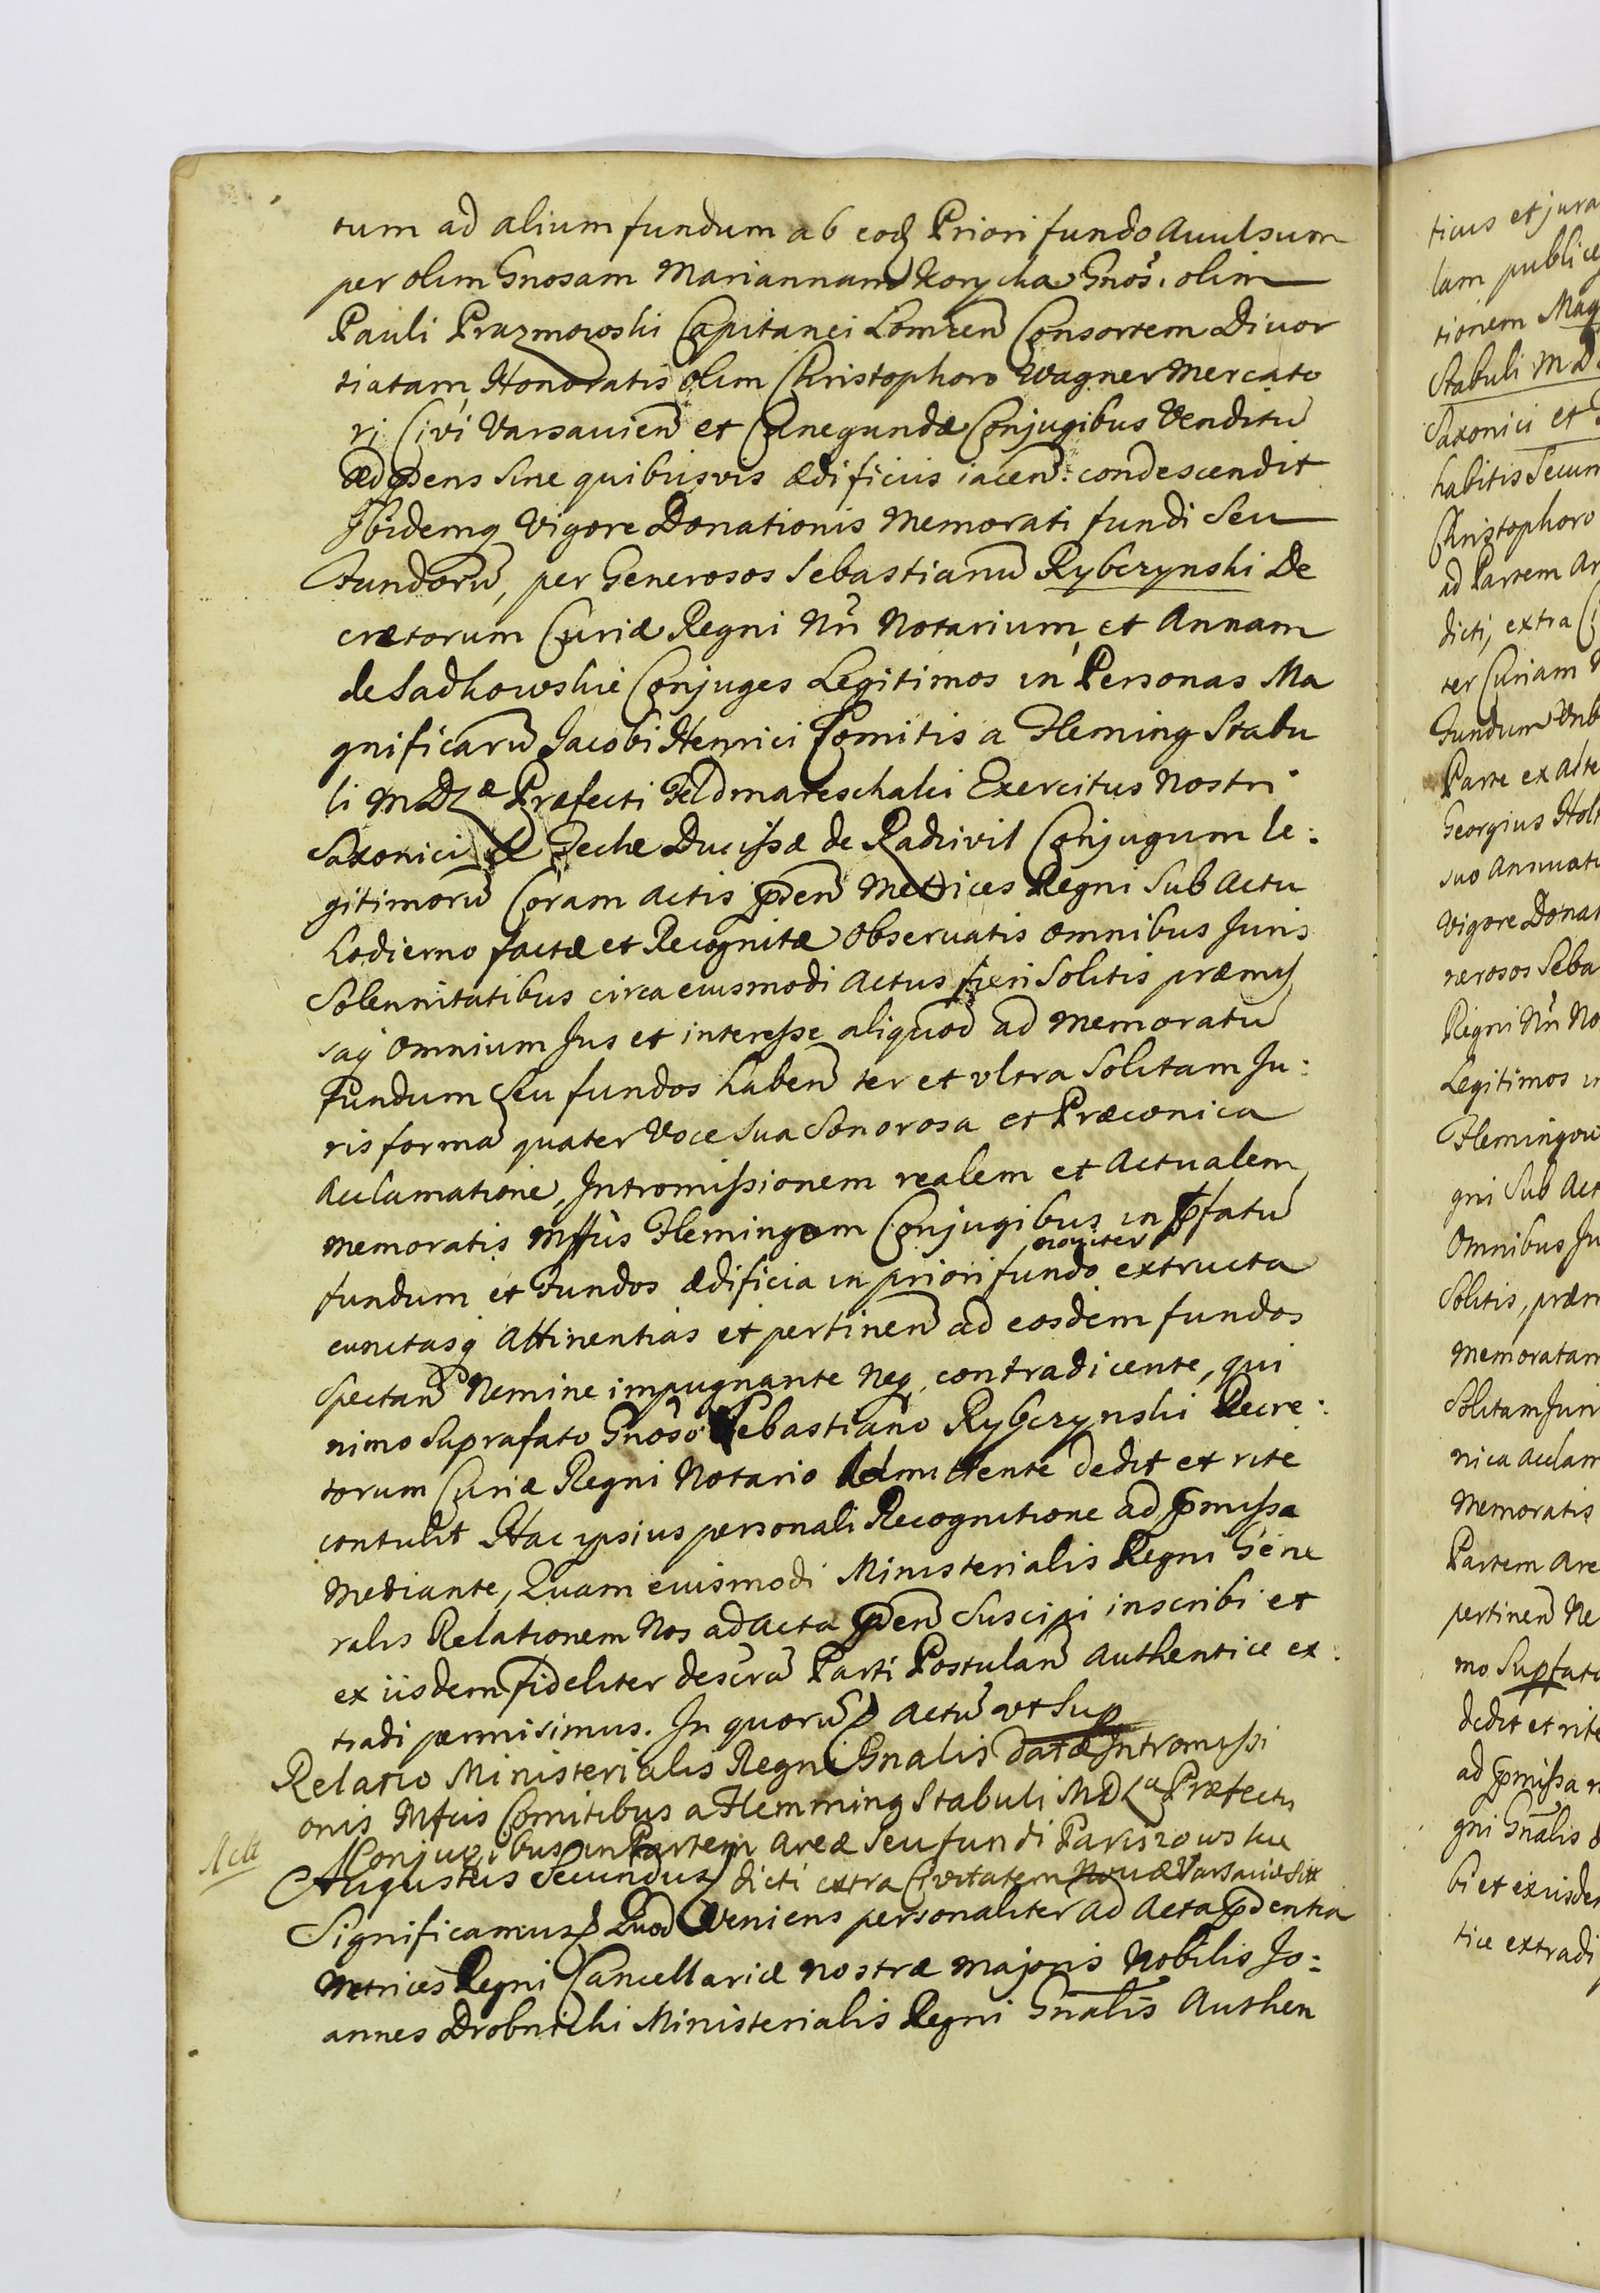 tum ad alium fundum ab eodꝫ Priori fundo Avulsum
per olim Gnosam Mariannam Korycka Gnōs. olim
Pauli Prazmowski Capitanei Lomzen̄ Consortem Divor
tiatam, Honoratis olim Christophoro Wagner Mercato
ri Civi Varsavien̄ et Cunegundæ Conjugibus Venditū
ad p̄dens sine quibusvis ædificiis iacen̄: condescendit
Ibidemq Vigore Donationis Memorati fundi Seu
Fundorū, per Generosos Sebastianū Rybczynski De
cretorum Curiæ Regni Nr̄i Notarium, et Annam
de Sadkowskie Conjuges Legitimos in Personas Ma
gnificarū Jacobi Henrici Comitis a Fleming Stabu
li MDLæ Præfecti Feldmareschalci Exercitus Nostri
Saxonici & Teclæ Ducissæ de Radzivil Conjugum le:
gitimorū Coram Actis p̄den̄ Metrices Regni Sub Actu
hodierno factæ et Recognitæ Observatis omnibus Juris
Solennitatibus circa eiusmodi Actus fieri Solitis præmis
saq̨ Omnium Jus et interesse aliquod ad Memoratū
Fundum Seu fundos haben̄ ter et ultra Solitam Ju:
ris formā quater Voce Sua Sonorosa et Præconica
Acclamatione, Intromissionem realem et Actualem
Memoratis Mffūs Flemingom Conjugibus in p̄fatū
fundum et Fundos ædificia in priori fundo noviter extructa
cunctasq̨ Attinentias et pertinen̄ ad eosdem fundos
Spectan̄ Nemine impugnante Neq̨ contradicente, qui
nimo Suprafato Gnōso Sebastiano Rybczynski Decre:
torum Curiæ Regni Notario Admittente dedit et rite
contulit Hac ipsius personali Recognitione ad p̄missa
Mediante, Quam eiusmodi Ministerialis Regni Gene
ralis Relationem Nos ad Acta p̄den̄ Suscipi inscribi et
ex iisdem fideliter descrā Parti Postulan̄ Authentice ex:
tradi permisimus. In quorū Actū ut Sup
Relatio Ministerialis Regni Gnalis datæ Intromissi
onis Mfcis Comitibus a Flemming Stabuli MDLæ Præfectis
Conjugibus in Partem Areæ Seu fundi Pariszowskie
Augustus Secundus dicti extra Civitatem Novæ Varsaviæ Sitt
Significamus Quod Veniens personaliter ad Acta p̄dentia
Metrices Regni Cancellariæ Nostræ Majoris Nobilis Jo:
annes Drobnicki Ministerialis Regni Gn̄alis Authen
ticus et jura
lam publice
tionem Mag
Stabuli MD
Saxonici et
habitis Secun
Christophoro
ad Partem Ar
dicti, extra Ci
ter Curiam
Fundum Urb
Parte ex alte
Georgius Hol
suo annuati
Vigore Donat
nerosos Seba
Regni Nr̄i No
Legitimos in
Flemingow
gni Sub Act
Omnibus Ju
Solitis, præm
Memoratam
Solitam Juri
nica acclam
Memoratis
Partem Are
pertinen̄ Ne
mo Supfato
dedit et rite
ad p̄missa
gni Gn̄alis
bi et exiisdem
tice extradi